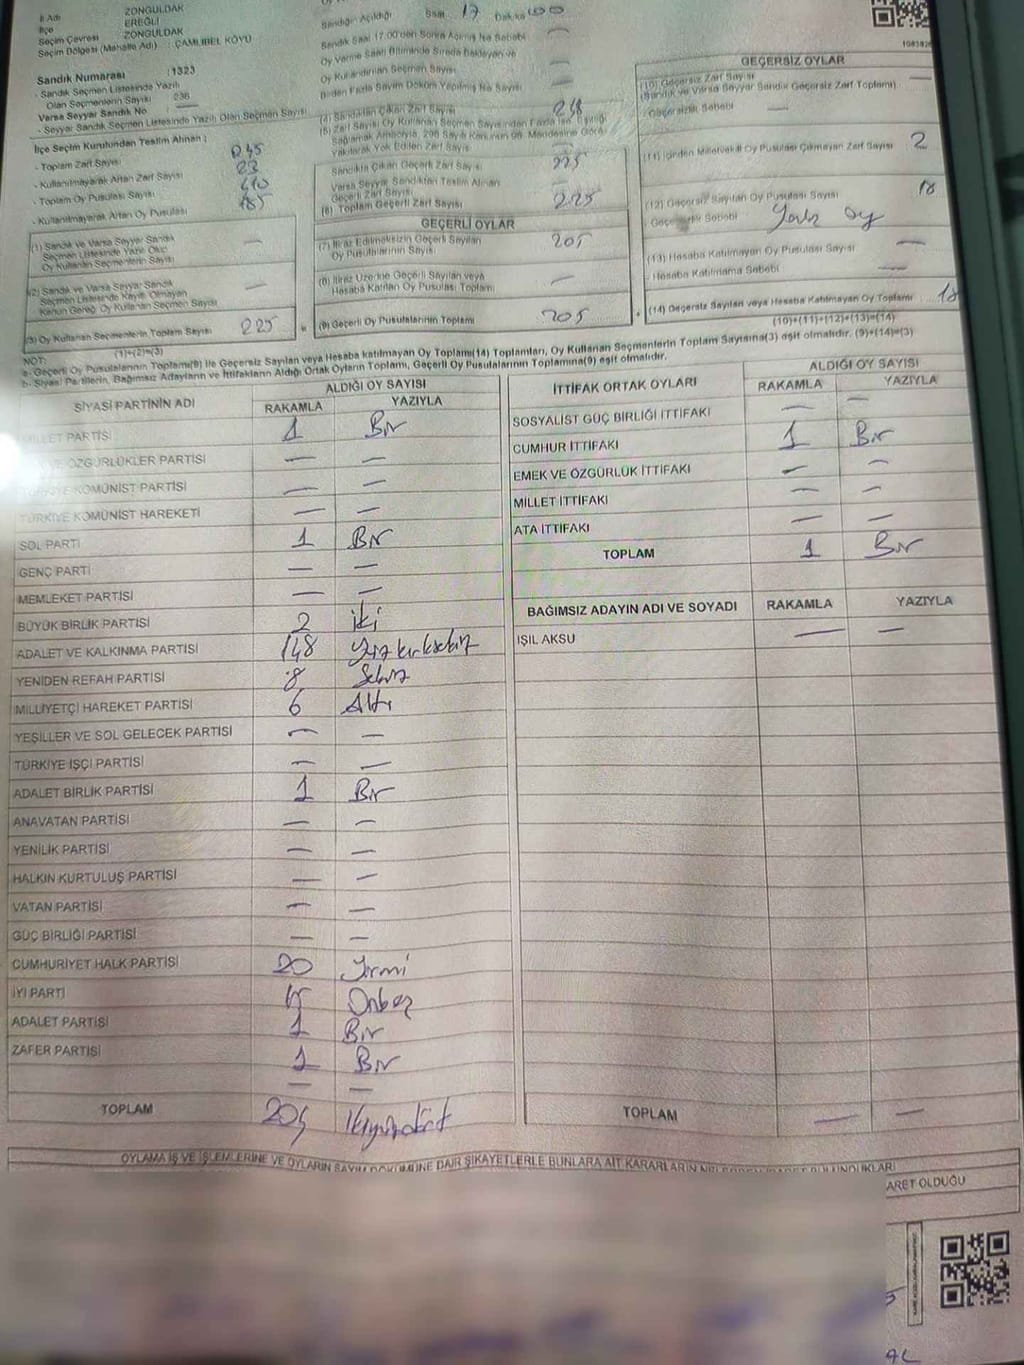 İl Adı ZONGULDAK
İlçe EREĞLİ
Seçim Çevresi ZONGULDAK
Seçim Bölgesi (Mahalle Adı) : ÇAMLIBEL KÖYÜ
Sandık Numarası : 1323
- Sandık Seçmen Listesinde Yazılı
Olan Seçmenlerin Sayısı : 236
Varsa Seyyar Sandık No
- Seyyar Sandık Seçmen Listesinde Yazılı Olan Seçmen Sayısı
İlçe Seçim Kurulundan Teslim Alınan :
- Toplam Zarf Sayısı 245
- Kullanılmayarak Artan Zarf Sayısı
- Toplam Oy Pusulası Sayısı
- Kullanılmayarak Artan Oy Pusulası 185
(1) Sandık ve Varsa Seyyar Sandık
Seçmen Listesinde Yazılı Olup
Oy Kullanan Seçmenlerin Sayısı —
(2) Sandık ve Varsa Seyyar Sandık
Seçmen Listesinde Kayıtlı Olmayan
Kanun Gereği Oy Kullanan Seçmen Sayısı —
(3) Oy Kullanan Seçmenlerin Toplam Sayısı 225
(1)+(2)=(3)
Sandığın Açıldığı Saat 17 Dakika 00
Sandık Saat 17:00'den Sonra Açılmış İse Sebebi —
Oy Verme Saati Bitiminde Sırada Bekleyen ve
Oy Kullandırılan Seçmen Sayısı —
Birden Fazla Sayım Döküm Yapılmış İse Sayısı —
(4) Sandıktan Çıkan Zarf Sayısı
Sandıkta Çıkan Geçerli Zarf Sayısı 225
Varsa Seyyar Sandıktan Teslim Alınan
Geçerli Zarf Sayısı —
(6) Toplam Geçerli Zarf Sayısı 225
GEÇERLİ OYLAR
(7) İtiraz Edilmeksizin Geçerli Sayılan
Oy Pusulalarının Sayısı 205
(8) İtiraz Üzerine Geçerli Sayılan veya
Hesaba Katılan Oy Pusulası Toplamı —
(9) Geçerli Oy Pusulalarının Toplamı 205
GEÇERSİZ OYLAR
(10) Geçersiz Zarf Sayısı
(Sandık ve Varsa Seyyar Sandık Geçersiz Zarf Toplamı) —
Geçersizlik Sebebi —
(11) İçinden Milletvekili Oy Pusulası Çıkmayan Zarf Sayısı 2
(12) Geçersiz Sayılan Oy Pusulası Sayısı 18
Geçersizlik Sebebi
(13) Hesaba Katılmayan Oy Pusulası Sayısı —
Hesaba Katılmama Sebebi —
(14) Geçersiz Sayılan veya Hesaba Katılmayan Oy Toplamı 18
(10)+(11)+(12)+(13)=(14)
NOT:
a- Geçerli Oy Pusulalarının Toplamı(9) ile Geçersiz Sayılan veya Hesaba katılmayan Oy Toplamı(14) Toplamları, Oy Kullanan Seçmenlerin Toplam Sayısına(3) eşit olmalıdır. (9)+(14)=(3)
b- Siyasi Partilerin, Bağımsız Adayların ve İttifakların Aldığı Ortak Oyların Toplamı, Geçerli Oy Pusulalarının Toplamına(9) eşit olmalıdır.
SİYASİ PARTİNİN ADI
ALDIĞI OY SAYISI
RAKAMLA YAZIYLA
MİLLET PARTİSİ 1 Bir
ÖZGÜRLÜKLER PARTİSİ — —
TÜRKİYE KOMÜNİST PARTİSİ — —
TÜRKİYE KOMÜNİST HAREKETİ — —
SOL PARTİ 1 Bir
GENÇ PARTİ — —
MEMLEKET PARTİSİ — —
BÜYÜK BİRLİK PARTİSİ 2 İki
ADALET VE KALKINMA PARTİSİ 148 Yüzkırksekiz
YENİDEN REFAH PARTİSİ 8 Sekiz
MİLLİYETÇİ HAREKET PARTİSİ 6 Altı
YEŞİLLER VE SOL GELECEK PARTİSİ — —
TÜRKİYE İŞÇİ PARTİSİ — —
ADALET BİRLİK PARTİSİ 1 Bir
ANAVATAN PARTİSİ — —
YENİLİK PARTİSİ — —
HALKIN KURTULUŞ PARTİSİ — —
VATAN PARTİSİ — —
GÜÇ BİRLİĞİ PARTİSİ — —
CUMHURİYET HALK PARTİSİ 20 Yirmi
İYİ PARTİ 15 Onbeş
ADALET PARTİSİ 1 Bir
ZAFER PARTİSİ 1 Bir
— —
TOPLAM 204 İkiyüzdört
İTTİFAK ORTAK OYLARI
ALDIĞI OY SAYISI
RAKAMLA YAZIYLA
SOSYALİST GÜÇ BİRLİĞİ İTTİFAKI — —
CUMHUR İTTİFAKI 1 Bir
EMEK VE ÖZGÜRLÜK İTTİFAKI — —
MİLLET İTTİFAKI — —
ATA İTTİFAKI — —
TOPLAM 1 Bir
BAĞIMSIZ ADAYIN ADI VE SOYADI RAKAMLA YAZIYLA
IŞIL AKSU — —
TOPLAM — —
OYLAMA İŞ VE İŞLEMLERİNE VE OYLARIN SAYIM DÖKÜMÜNE DAİR ŞİKAYETLERLE BUNLARA AİT KARARLARIN
ARET OLDUĞU